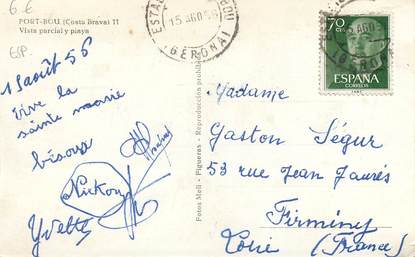 6 €
PORT-BOU (Costa Brava) 11
Vista parcial y playa
ESP.
15 août 56
Vive la
sainte marie
bisoux
Yvette
Fotos Meli - Figueras - Reproducción prohibida
15 AGO 56
(GERONA)
70
CTS
ESPAÑA
CORREOS
Madame
Gaston Ségur
53 rue Jean Jaurés
Firminy
Loire (France)